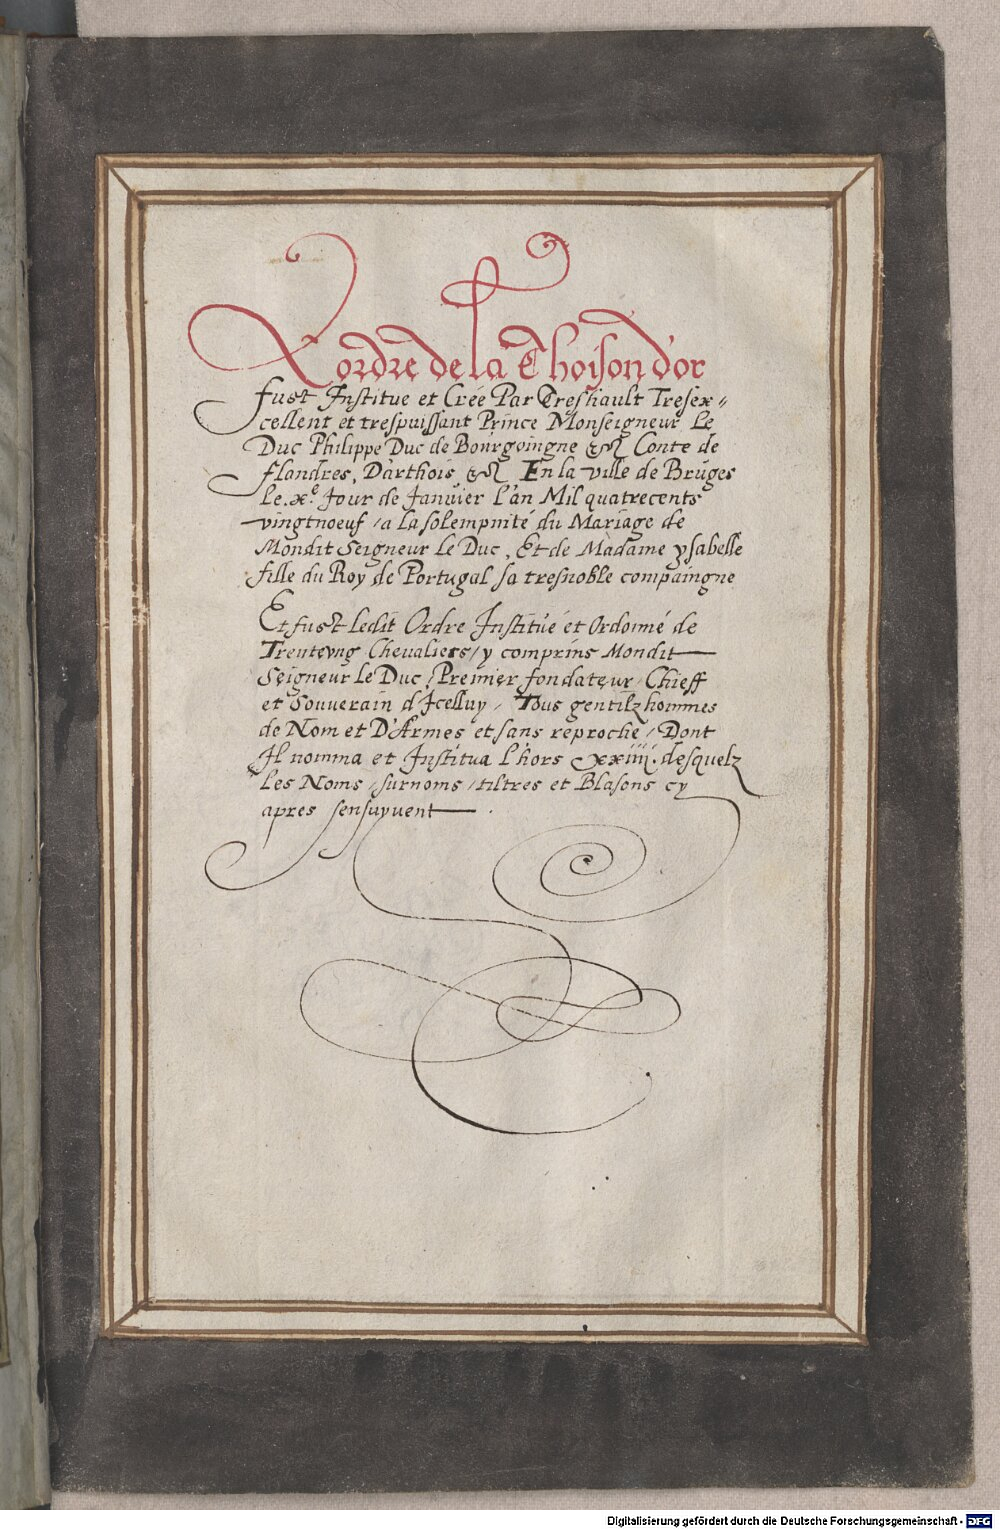 Lordre de la Thoison d'or
fust Institue et Crée Par Treshault Tresex=
cellent et trespuissant Prince Monseigneur Le
Duc Philippe Duc de Bourgoingne &c Conte de
flandres, D'arthois &c En la ville de Bruges
Le .xe. Jour de Janvier L'an Mil quatrecents
vingtnoeuf / a la solempnité du Mariage de
Mondit Seigneur Le Duc, Et de Madame ysabelle
fille du Roy de Portugal sa tresnoble compaingne
Et fust Ledit Ordre Institué et Ordonné de
Trenteung Chevaliers / y comprins Mondit
Seigneur Le Duc / Premier fondateur / Chieff
et Souverain d'Icelluy / Tous gentilzhommes
de Nom et D'Armes et sans reproche / Dont
Il nomma et Institua L'hors xxiiii. desquelz
Les Noms / surnoms / tiltres et Blasons cy
apres sensuyvent .
Digitalisierung gefördert durch die Deutsche Forschungsgemeinschaft - DFG